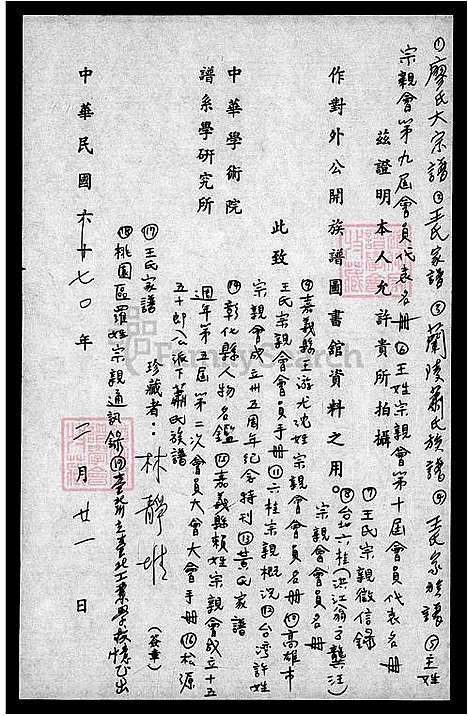 ①廖氏大宗譜②王氏家譜③蘭陵蕭氏族譜④王氏家族譜⑤王姓
宗親會第九屆會員代表名冊⑥王姓宗親會第十屆會員代表名冊
茲證明本人允許貴所拍攝
⑦王氏宗親徵信錄
作對外公開族譜圖書館資料之用。
⑧台北六桂(洪江翁方龔汪)
宗親會會員名冊
此致
⑨嘉義縣王游尤沈姓宗親會會員名冊⑩高雄市
王氏宗親會會員手冊⑪六桂宗親概況⑫台湾許姓
宗親會成立卅五周年紀念特刊⑬黃氏家譜
中華學術院
⑭彰化縣人物名鑑⑮嘉義縣賴姓宗親會成立十五
譜系學研究所
週年第五屆第二次會員大會大會手冊⑯松源
五十郎公派下蕭氏族譜
珍藏者：林靜
(簽章)
⑰王氏家譜
⑱桃園區羅姓宗親通訊錄⑲臺北工業學校憶
中華民國六十七〇年二月廿一日
FamilySearch